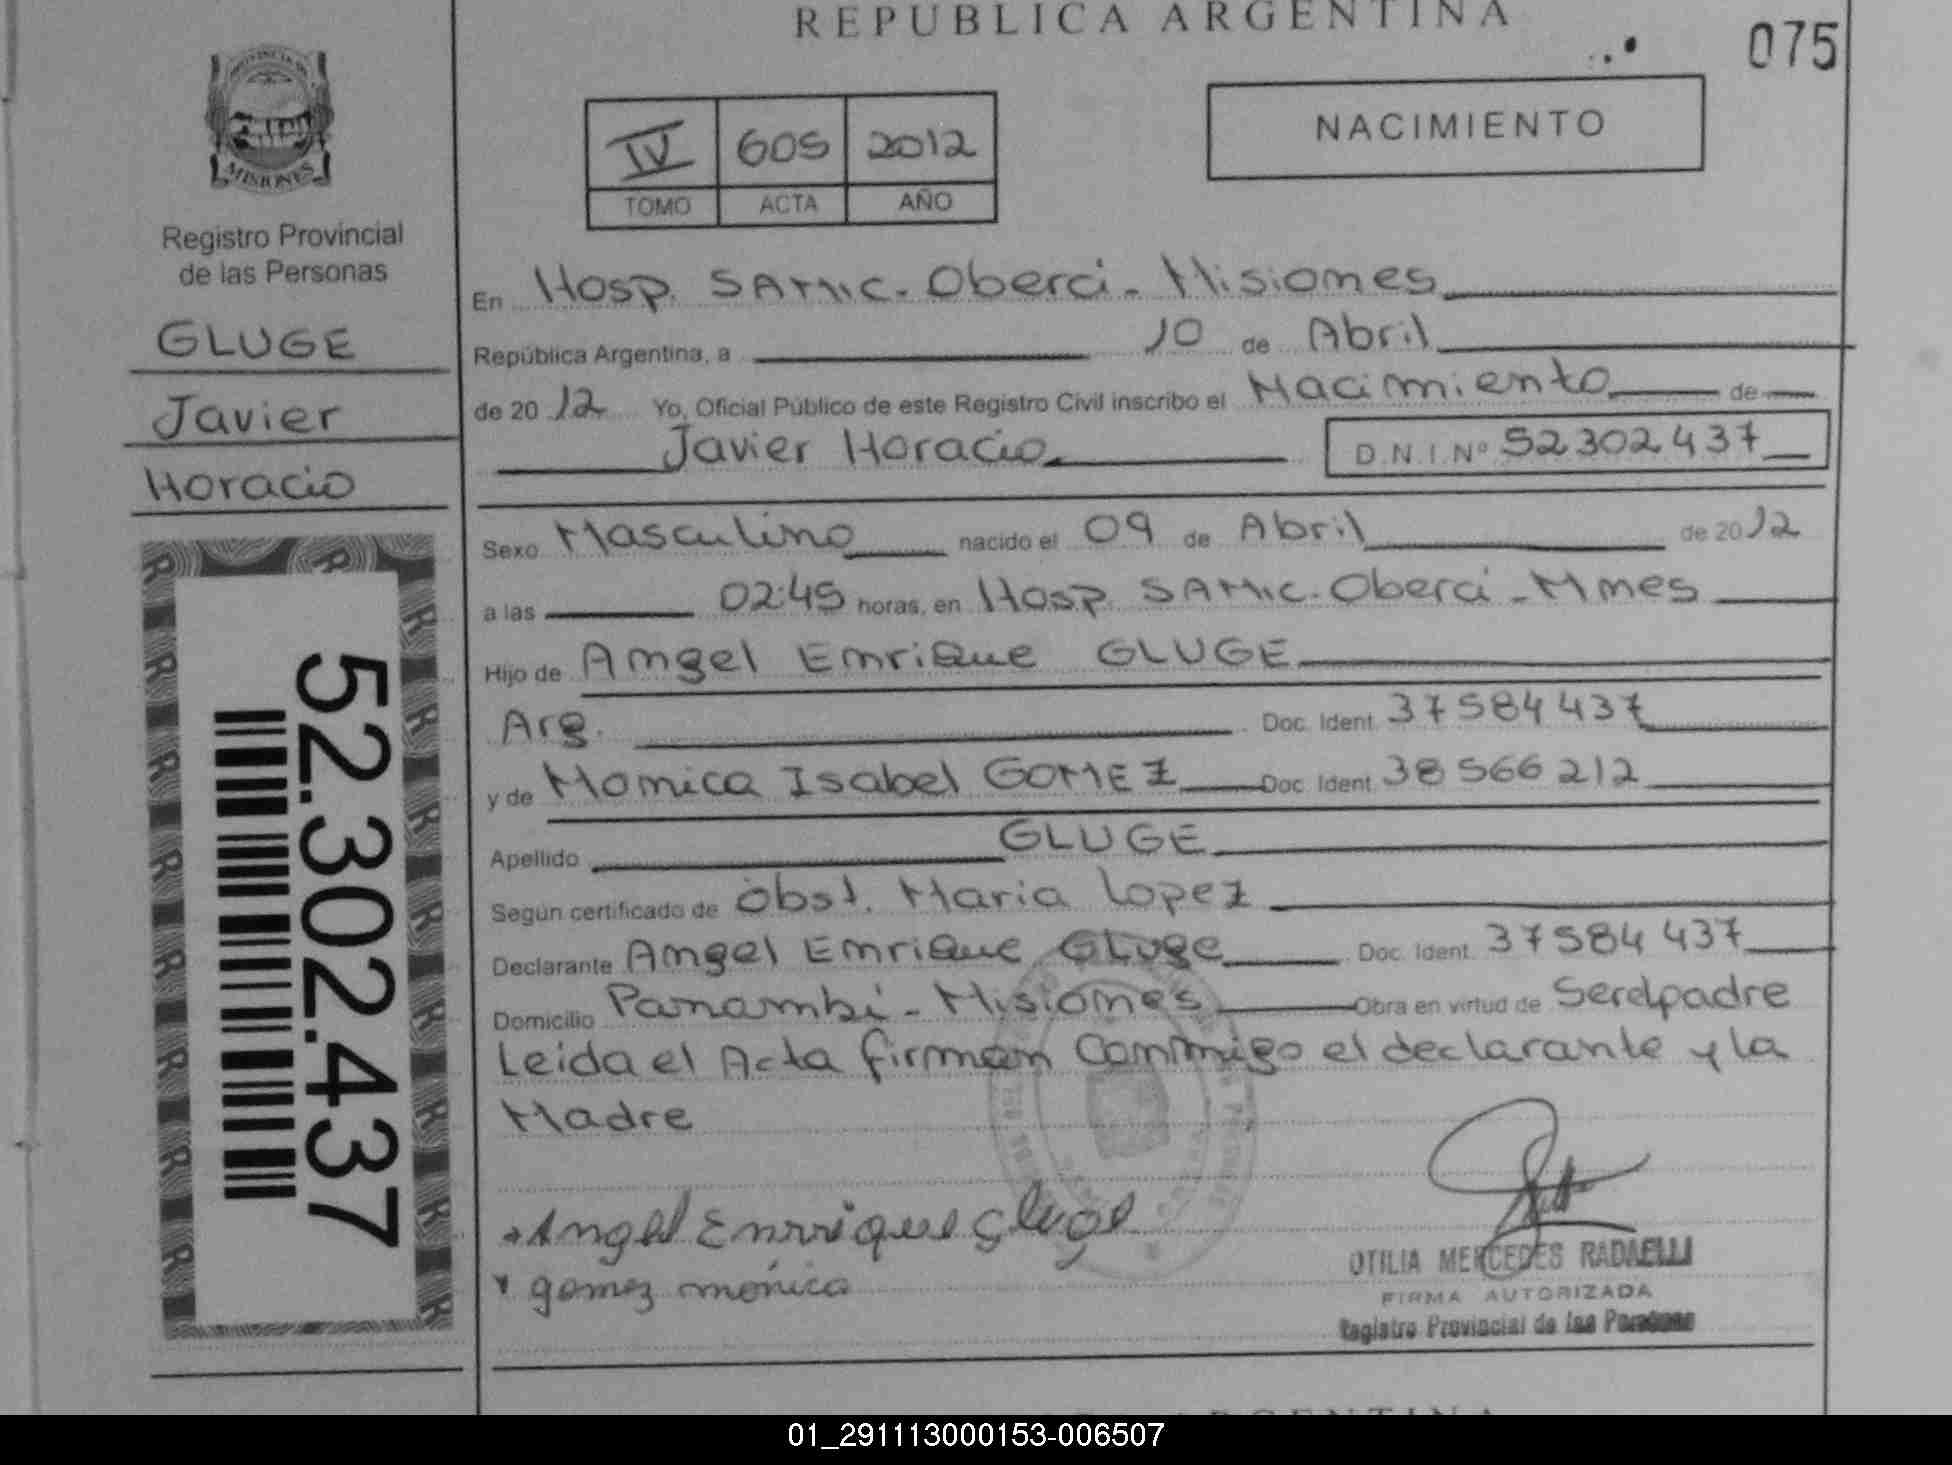 REPUBLICA ARGENTINA
075
PROVINCIA DE
MISIONES
Registro Provincial
de las Personas
GLUGE
Javier
Horacio
52.302.437
IV 605 2012
TOMO ACTA AÑO
NACIMIENTO
En Hosp. SAMIC. Oberá - Misiones
República Argentina, a 10 de Abril
de 2012 Yo, Oficial Público de este Registro Civil inscribo el Nacimiento de
Javier Horacio D.N.I.Nº 52302437
Sexo Masculino nacido el 09 de Abril de 2012
a las 02:45 horas, en Hosp. SAMIC. Oberá - Mnes
Hijo de Angel EnriQue GLUGE
Arg. Doc. Ident. 37584437
y de Monica Isabel GOMEZ Doc. Ident. 38566212
Apellido GLUGE
Según certificado de Obst. Maria Lopez
Declarante Angel EnriQue Gluge Doc. Ident. 37584437
Domicilio Panambí - Misiones Obra en virtud de Ser el padre
Leida el Acta firman Conmigo el declarante y la
Madre
Angel Enrrique Gluge
gomez monica
OTILIA MERCEDES RADAELLI
FIRMA AUTORIZADA
Registro Provincial de las Personas
01_291113000153-006507